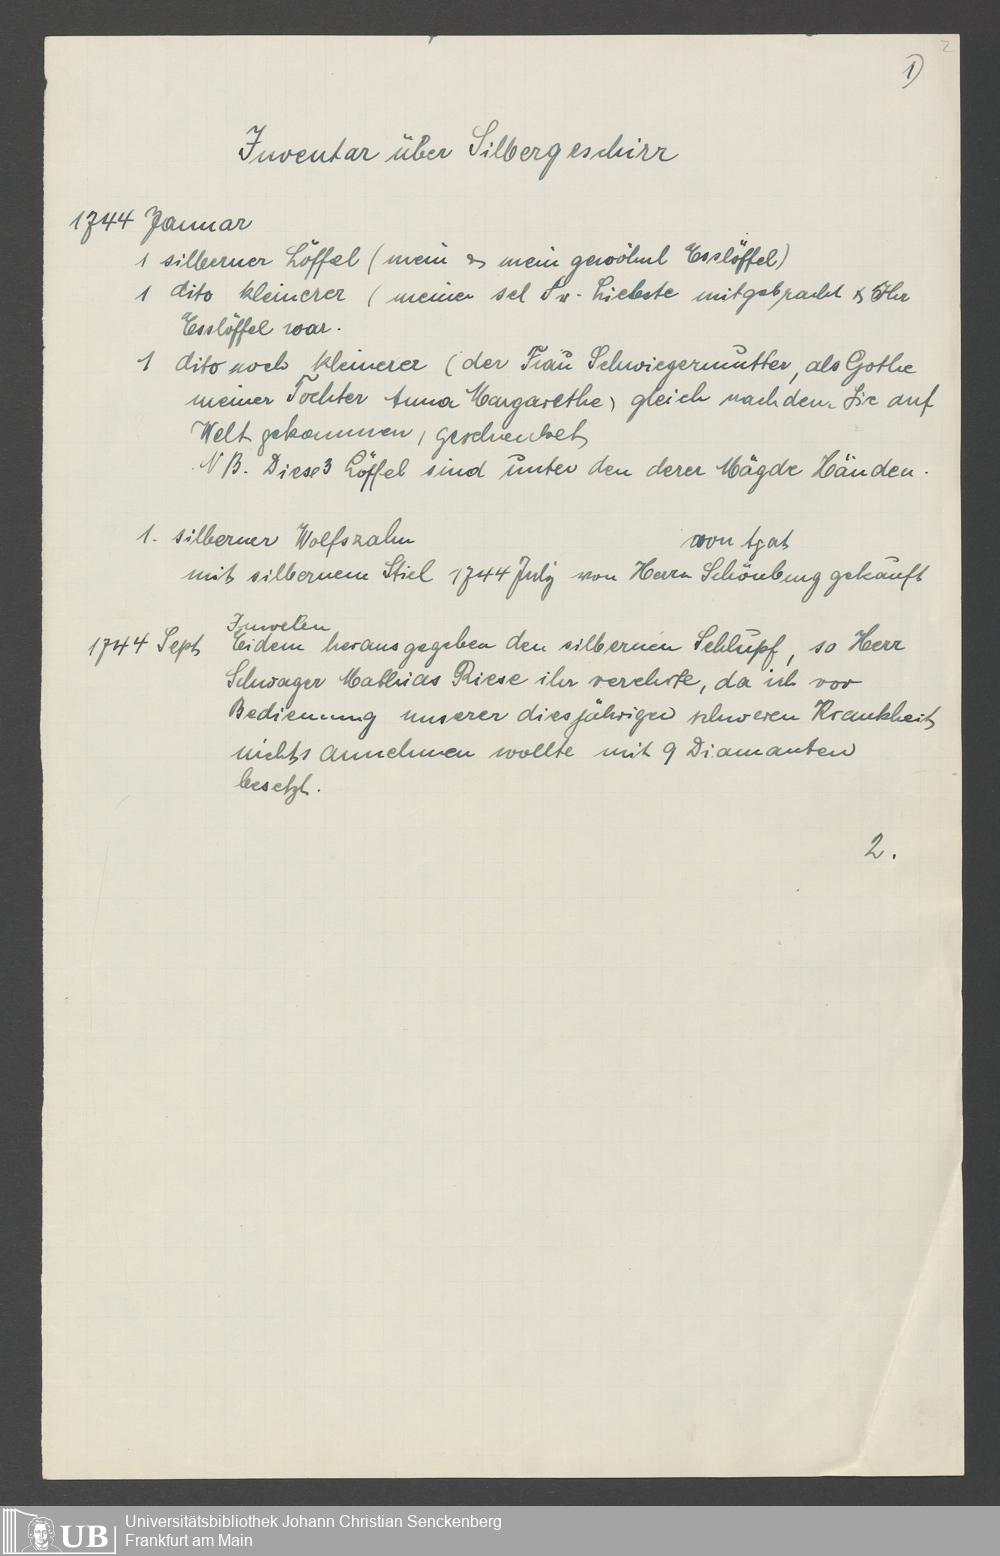 2
1)
Inventar über Silbergeschirr
1744 Januar
1 silberner Löffel (mein & mein gewöhnl Esslöffel)
1 dito kleinerer (meiner sel Fr. Liebste mitgebracht & Ihr
Esslöffel war.
1 dito noch kleinerer (der Frau Schwiegermutter, als Gothe
meiner Tochter Anna Margarethe, gleich nachdem Sie auf
Welt gekommen, geschenket
NB. Diese 3 Löffel sind unter den derer Mägde Händen.
1. silberner Wolfszahn von Agat
mit silbernem Stiel 1744 July von Herrn Schönburg gekauft
Juwelen
1744 Sept Eidem herausgegeben den silbernen Schlupf, so Herr
Schwager Mathias Riese ihr verehrte, da ich vor
Bedienung unserer diesjährigen schweren Krankheit
nichts annehmen wollte mit 9 Diamanten
besetzt.
2.
UB
Universitätsbibliothek Johann Christian Senckenberg
Frankfurt am Main